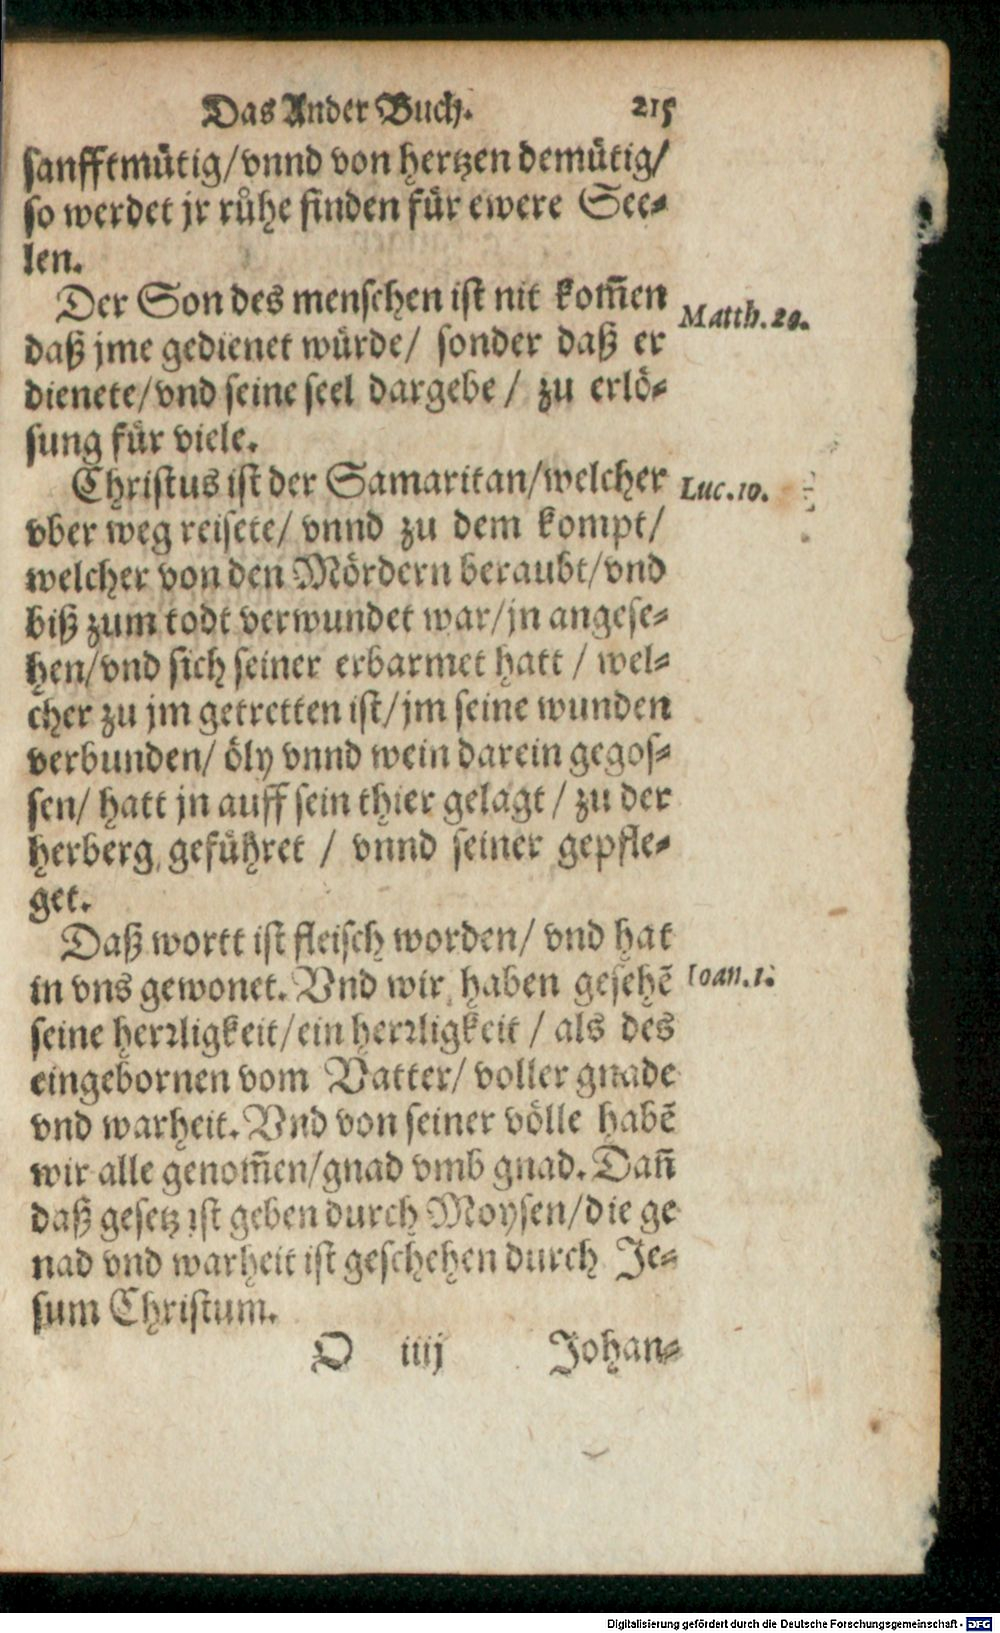 Das Ander Buch. 215
sanfftmütig/vnnd von hertzen demütig/
so werdet jr růhe finden für ewere See-
len.
Der Son des menschen ist nit kom̃en Matth. 20.
daß jme gedienet würde/ sonder daß er
dienete/vnd seine seel dargebe / zu erlö-
sung für viele.
Christus ist der Samaritan/welcher Luc. 10.
vber weg reisete/ vnnd zu dem kompt/
welcher von den Mördern beraubt/vnd
biß zum todt verwundet war/jn angese-
hen/vnd sich seiner erbarmet hatt / wel-
cher zu jm getretten ist/jm seine wunden
verbunden/ öly vnnd wein darein gegos-
sen/ hatt jn auff sein thier gelagt / zu der
herberg geführet / vnnd seiner gepfle-
get.
Daß wortt ist fleisch worden/ vnd hat
in vns gewonet. Vnd wir haben gesehẽ Ioan. 1.
seine herꝛligkeit/ein herꝛligkeit / als des
eingebornen vom Vatter/ voller gnade
vnd warheit. Vnd von seiner völle habẽ
wir alle genom̃en/gnad vmb gnad. Dañ
daß gesetz ist geben durch Moysen/die ge
nad vnd warheit ist geschehen durch Je-
sum Christum.
O iiij Johan-
Digitalisierung gefördert durch die Deutsche Forschungsgemeinschaft - DFG